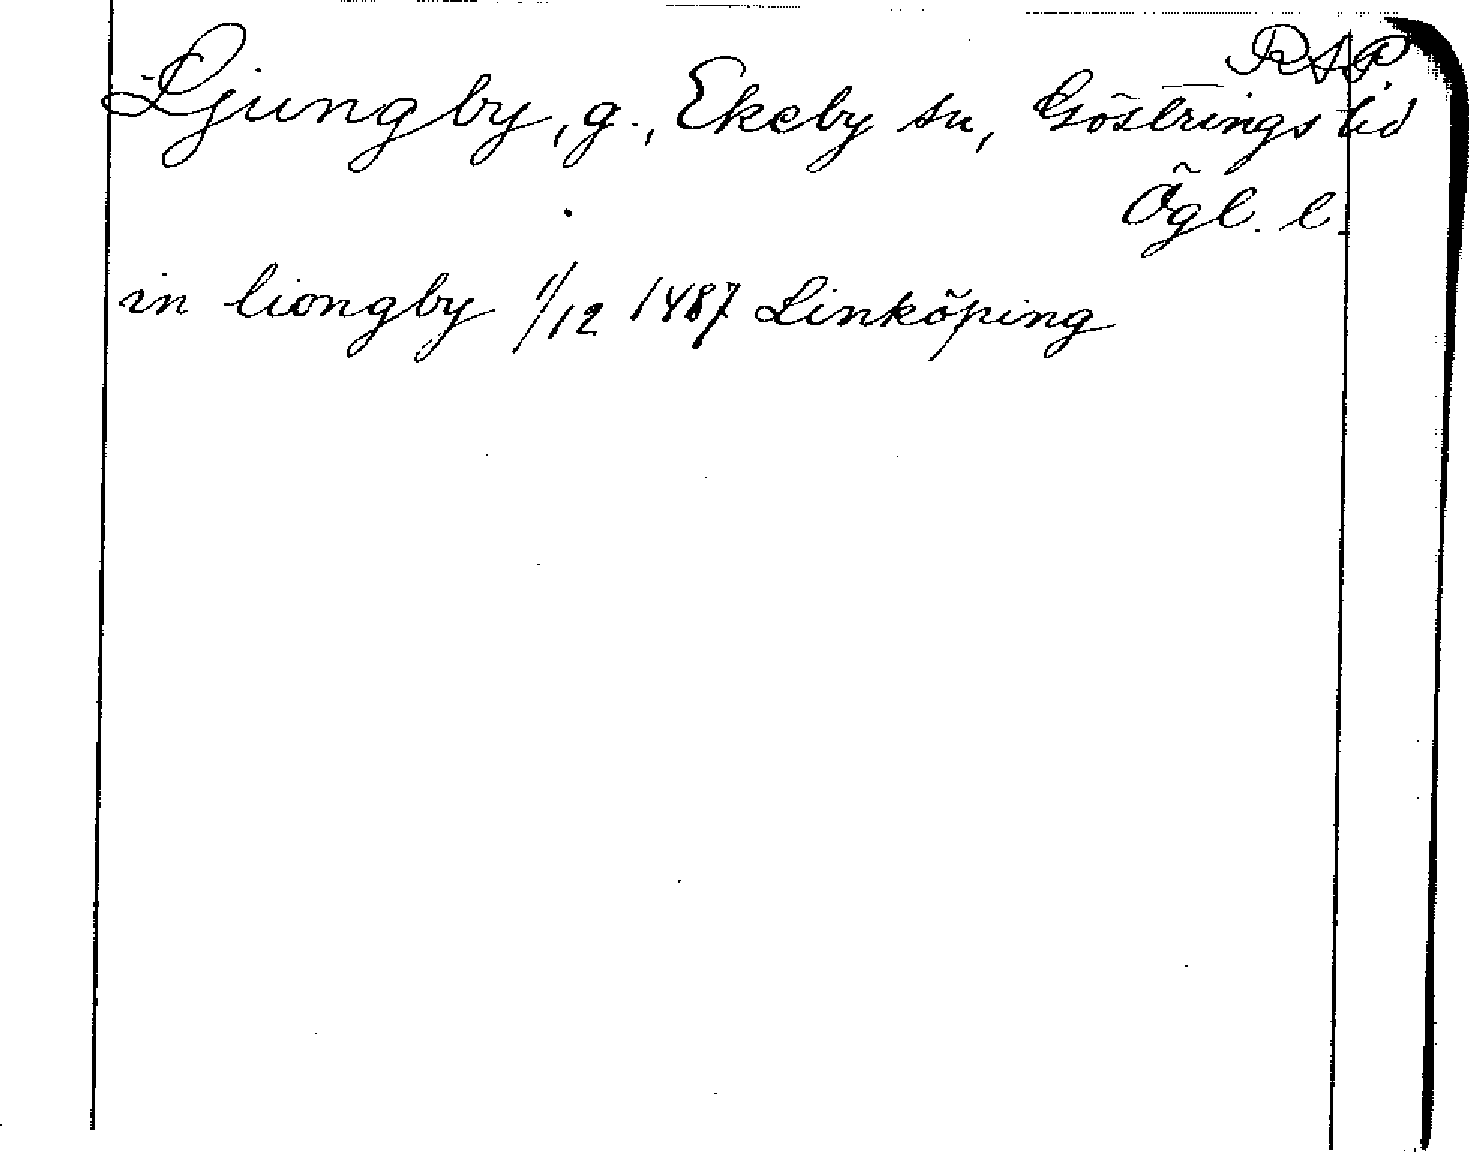 RAP
Ljungby, g., Ekeby sn, Göstrings hd
Ögl. l.
in liongby 1/12 1487 Linköping